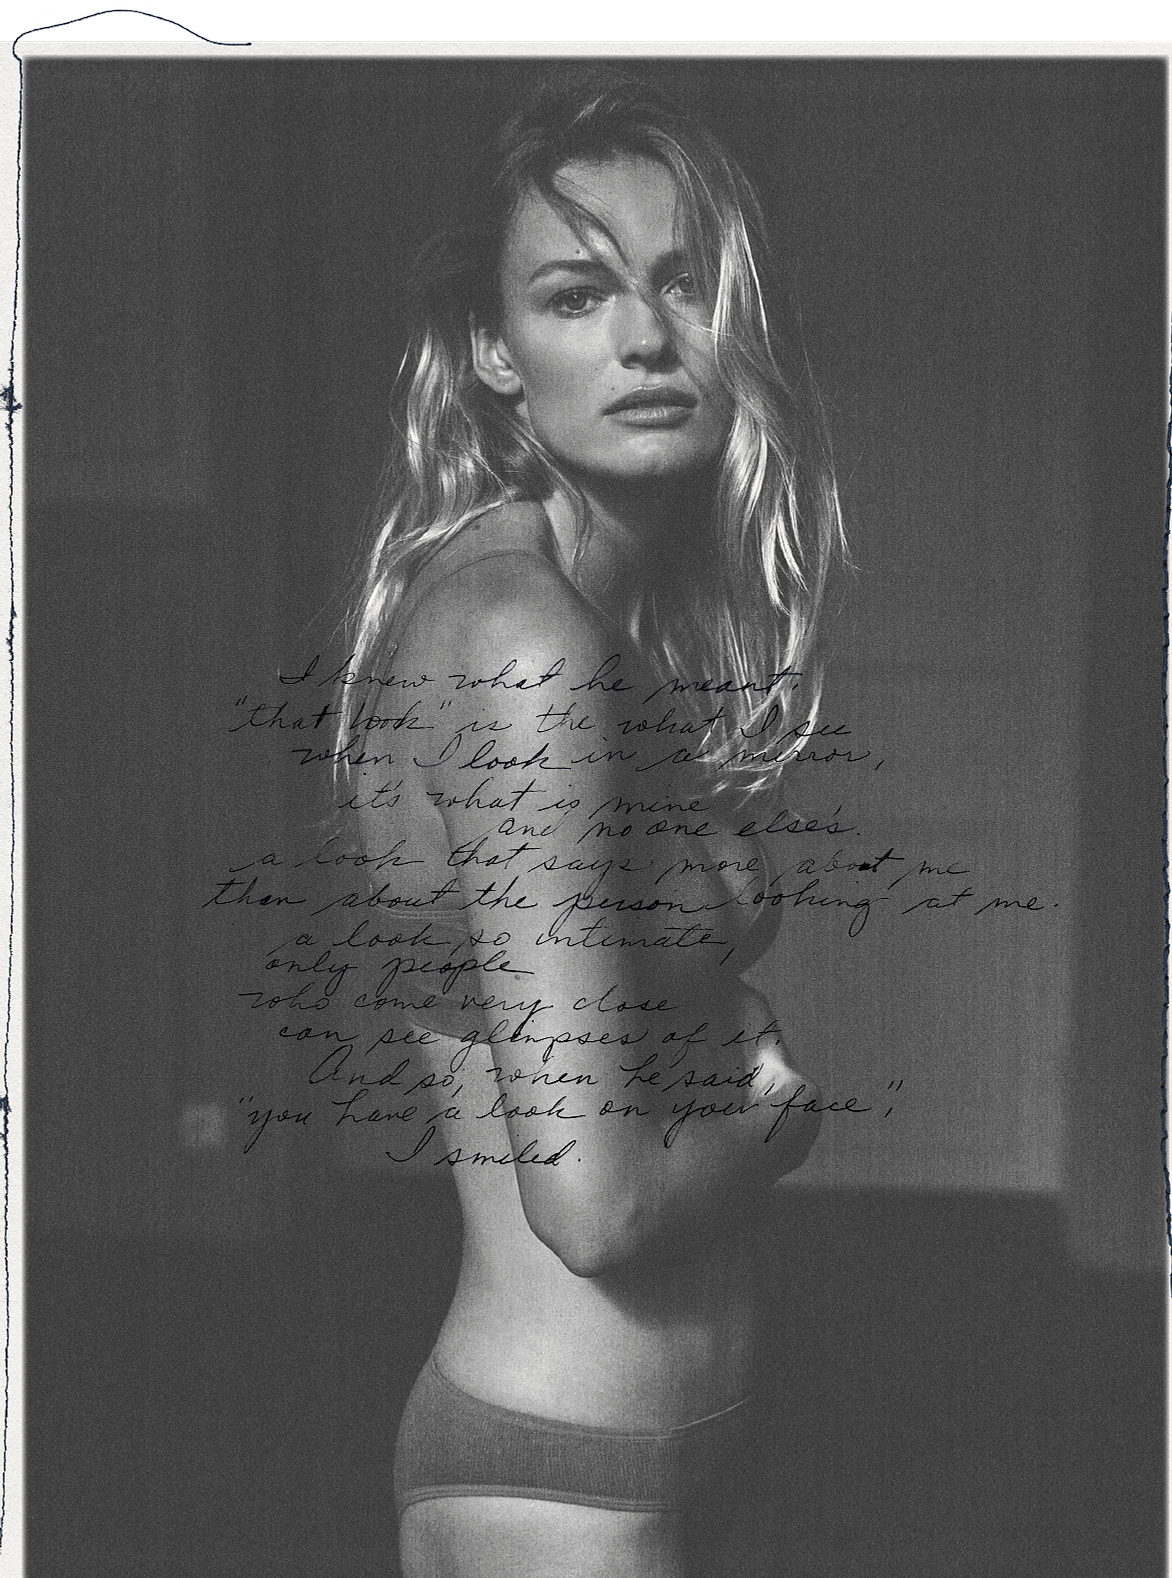 I knew what he meant.
"that look" is the what I see
when I look in a mirror,
it's what is mine
and no one else's.
a look that says more about me
than about the person looking at me.
a look so intimate,
only people
who come very close
can see glimpses of it.
And so, when he said,
"you have a look on your face",
I smiled.